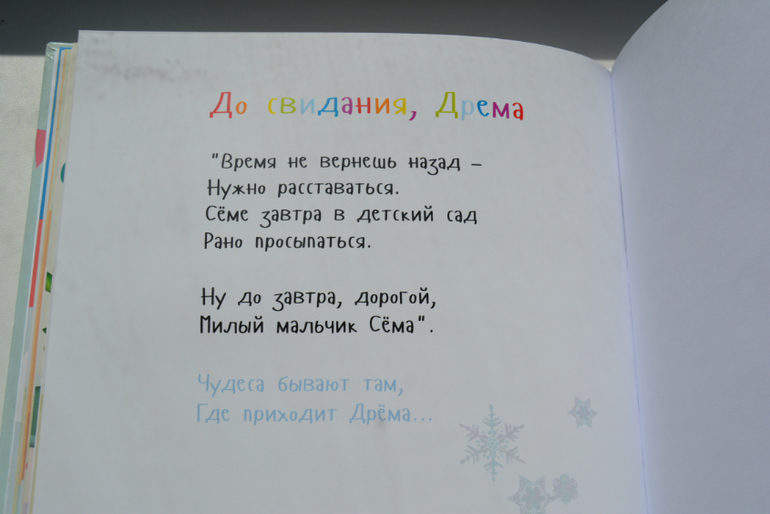 До свидания, Дрема
"Время не вернешь назад –
Нужно расставаться.
Сёме завтра в детский сад
Рано просыпаться.
Ну до завтра, дорогой,
Милый мальчик Сёма".
Чудеса бывают там,
Где приходит Дрёма...